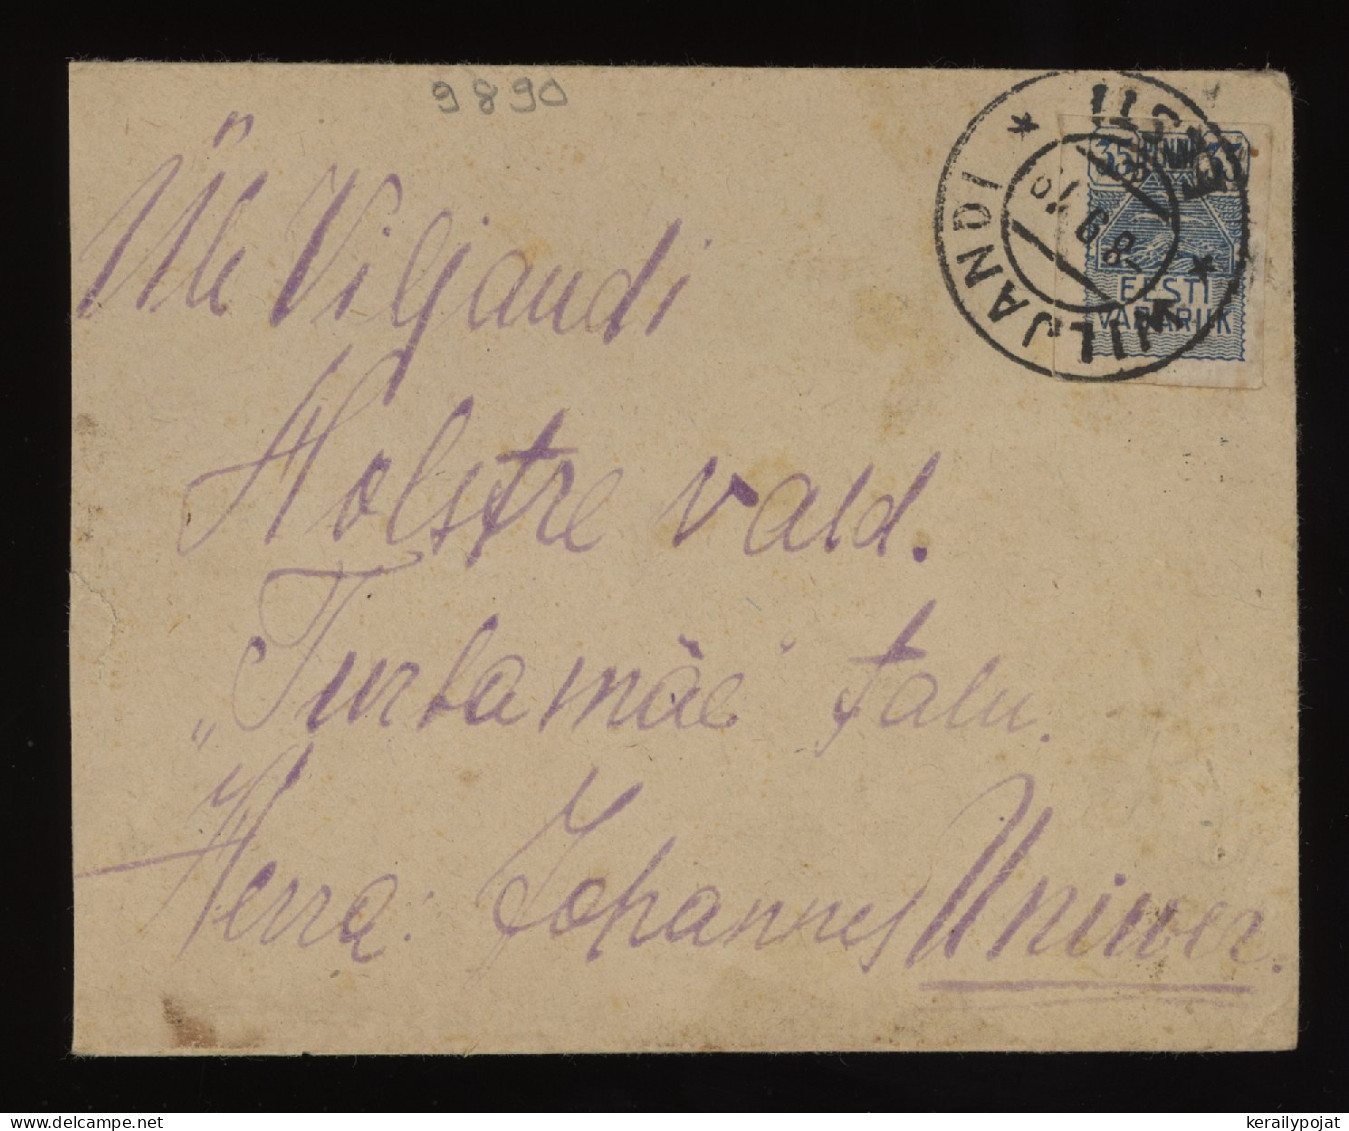 9890
EESTI
VILJANDI
35 PENNI 35
EESTI
VABARIIK
Üle Viljandi
Holstre vald.
„Turba mäe“ talu.
Herra: Johannes Uniwer.
kerailypojat